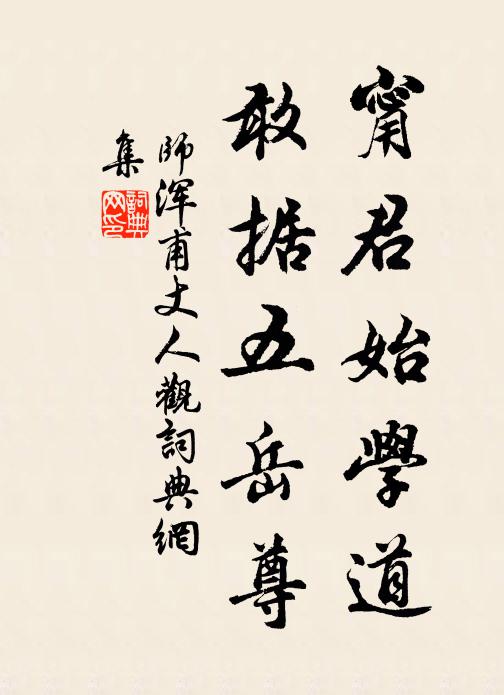 甯君始學道
敢据五岳尊
師渾甫丈人觀詞典網
集
詞典
网印